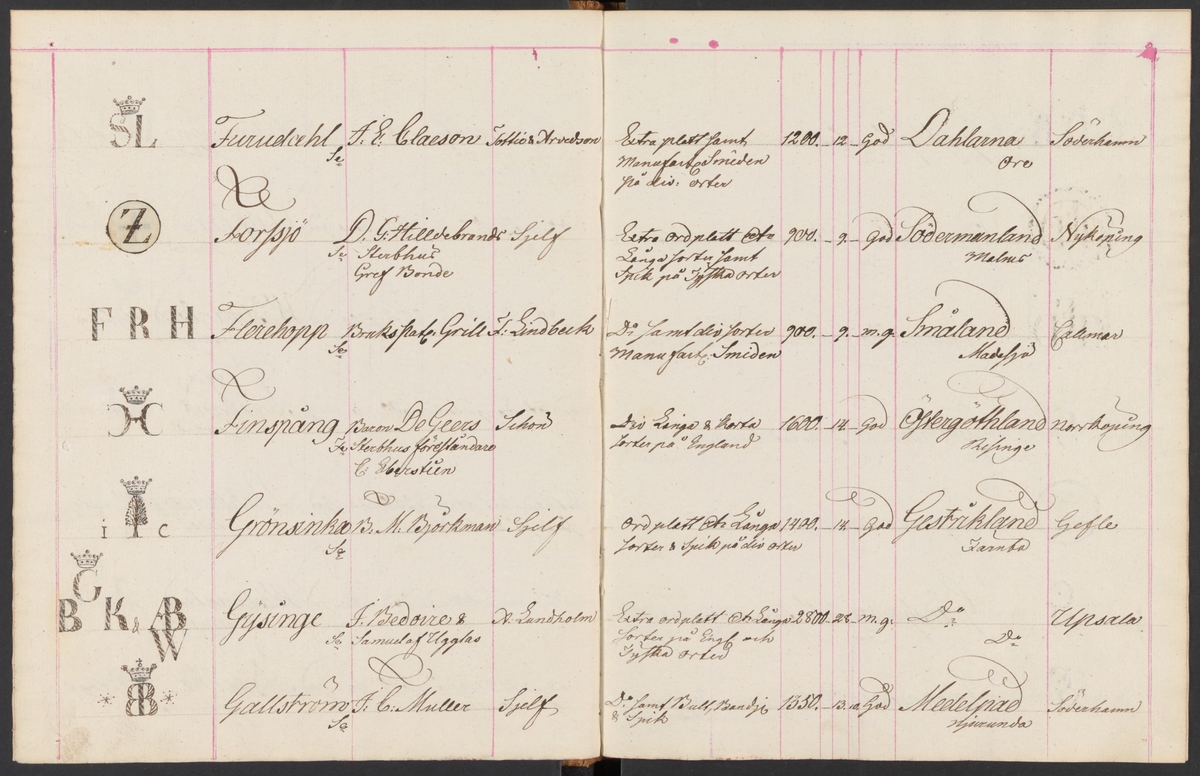 SL Furudahl J. E. Claeson Tottie & Arvedson Extra platt samt 1200. _ 12 _ God Dahlarna Söderhamn
Manufact. Smiden Ore
på div: Orter
Z Forssjö D. G. Hilldebrands Sjelf Extra ordplatt 900. _ 9. _ God Södermanland Nyköping
Sterbhus Långa sorter samt
Gref Bonde Spik på Tyska orter
F R H Flerehopp Bruks Pat. Grill F. Lindbeck Do samt div sorter 900. _ 9. _ m.g. Småland Calmar
Manufact. Smiden Madesjö
Finspång Baron De Geers Schön Div Långa & korta 1600. _ God Östergöthland Norrköping
Sterbhus förestandare sorter på England Risinge
C: Eberstien
I C Grönsinka B. M. Björkman Sjelf ordplatt Långa 1400. _ God Gestrikland Gefle
sorter & Spik på div orter
G
B K & AB Gysinge J. Bedoire & Lundholm Extra ordplatt Långa 2800. _ 28. _ m.g. Do Upsala
W Samuel af Ugglas sorter på Engl och Do
Tyska orter
* B * Gallström J. C: Muller Sjelf Do samt Bult, Bandj. 1350. _ God Medelpad Söderhamn
& Spik Njurunda